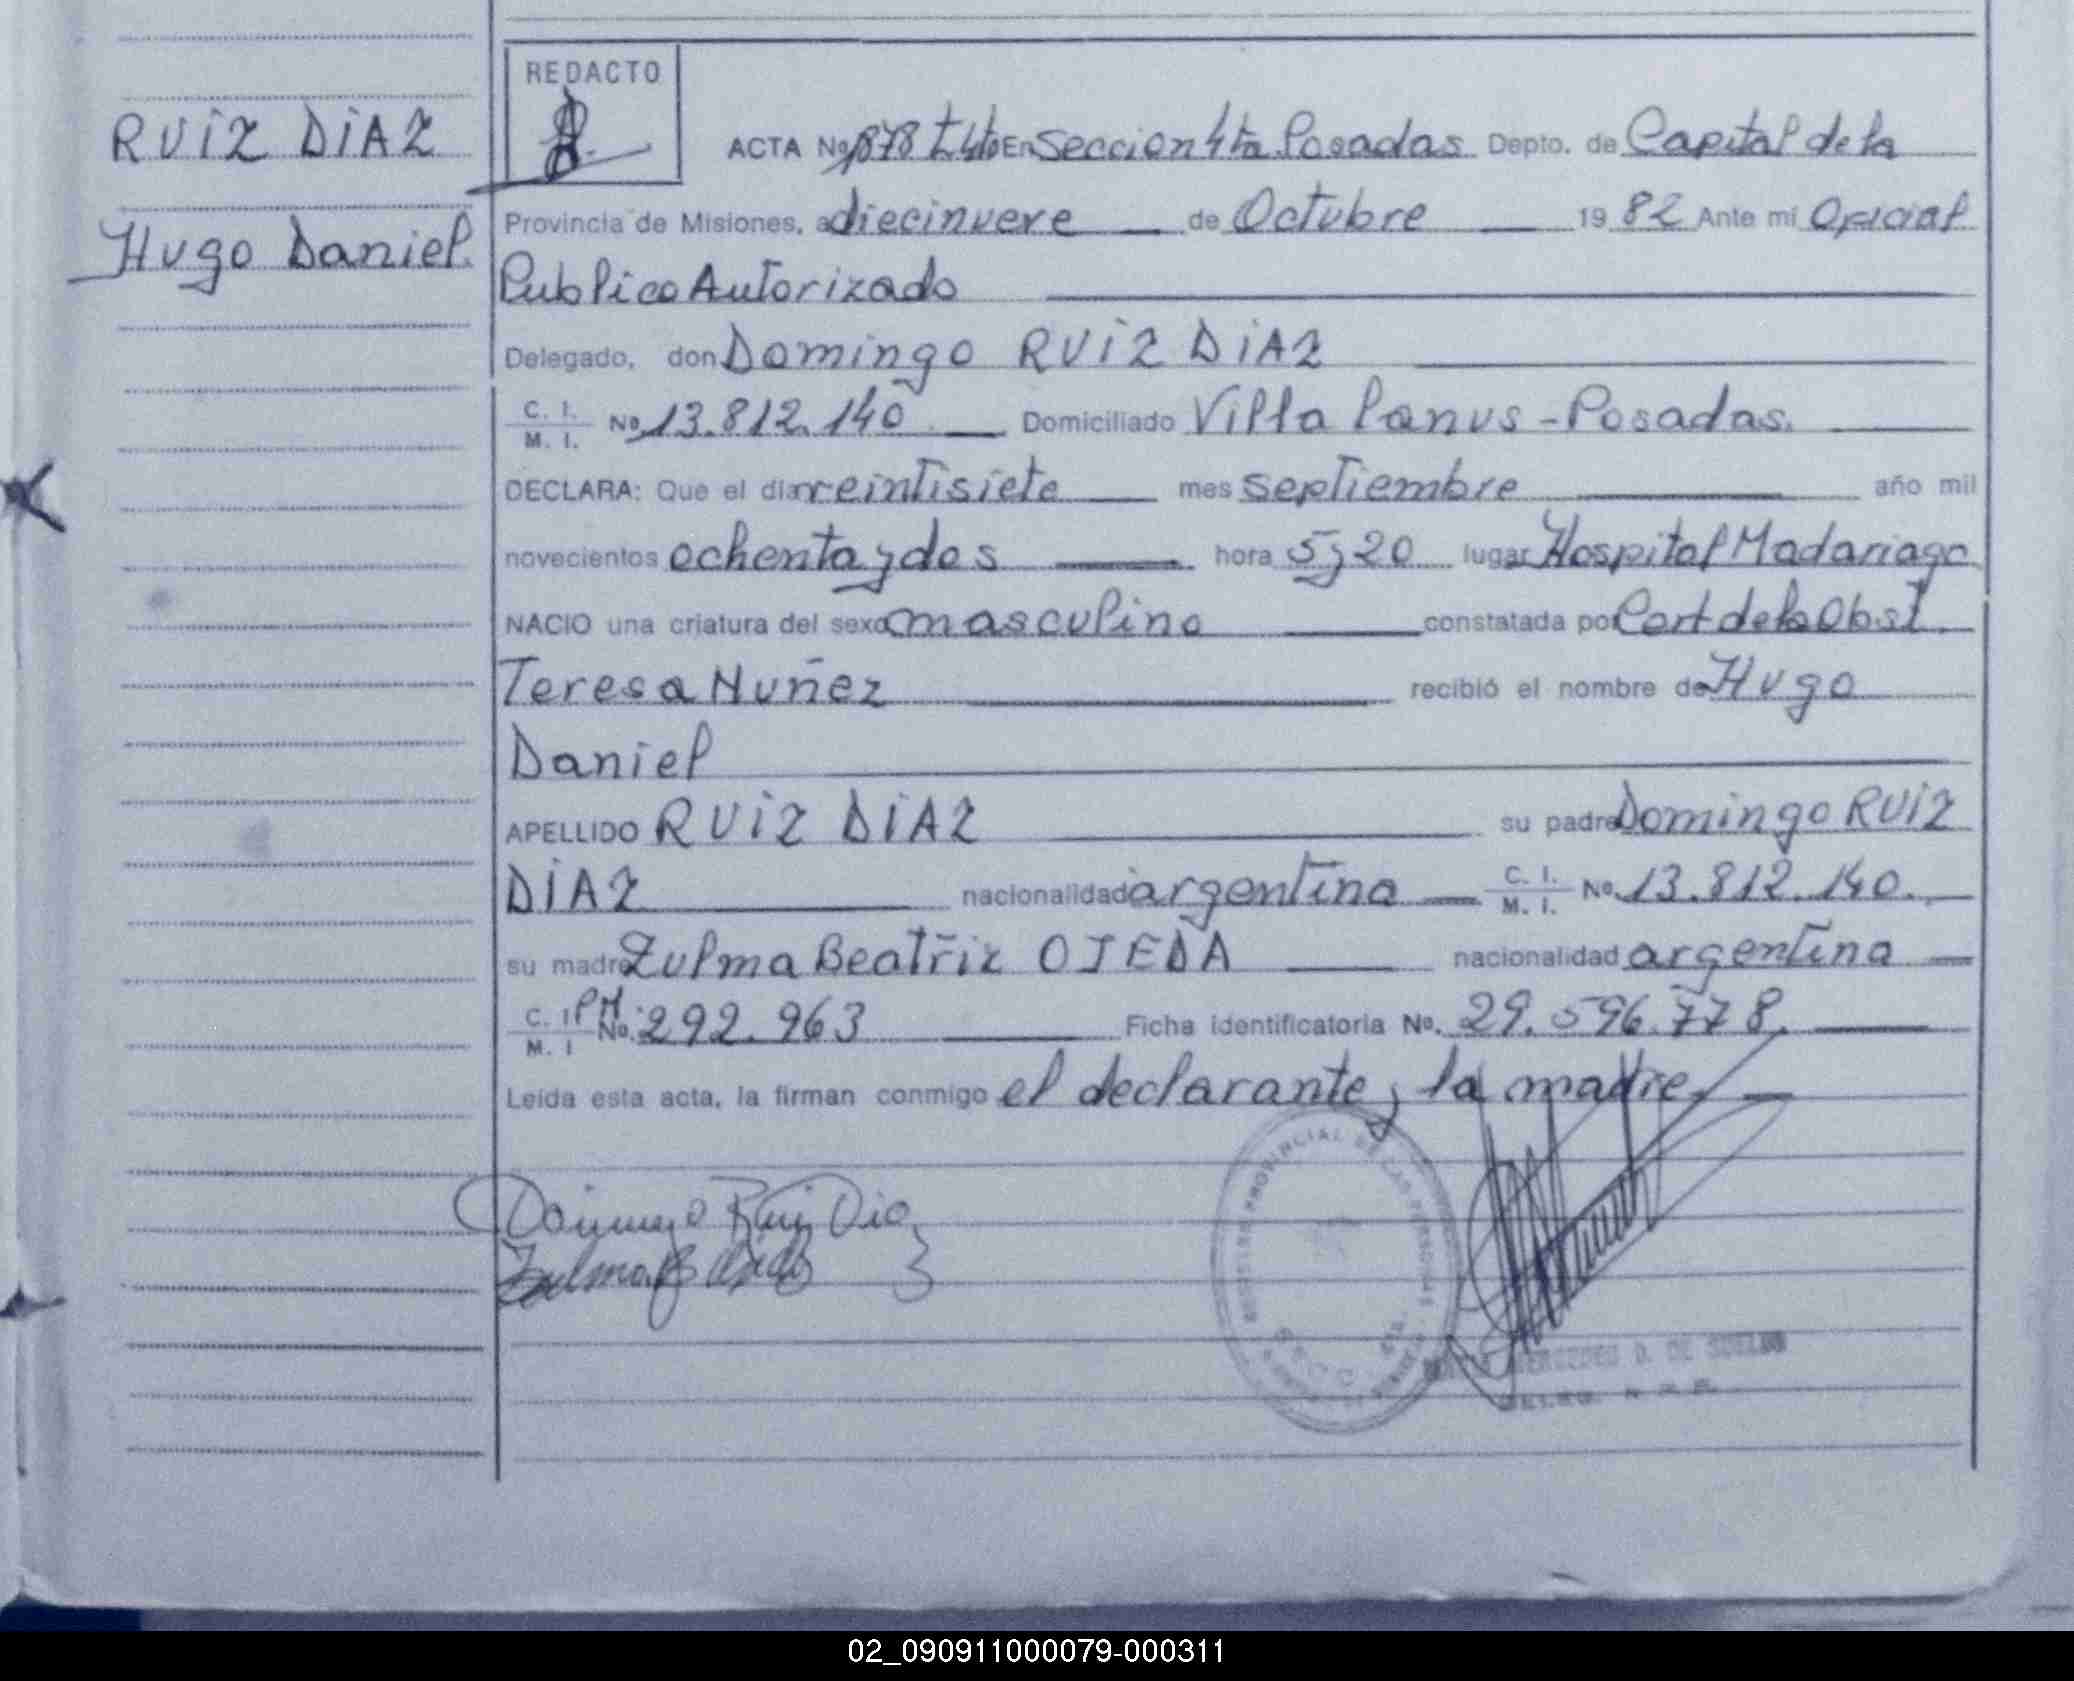 REDACTO
RUIZ DIAZ
Hugo Daniel
ACTA No 878 En Seccion 4ta Posadas Depto. de Capital de la
Provincia de Misiones, a diecinueve de Octubre 1982 Ante mi Oficial
Publico Autorizado
Delegado, don Domingo RUIZ DIAZ
C. I. M. I. No 13.812.140 Domiciliado Villa Lanus - Posadas.
DECLARA: Que el día veintisiete mes septiembre año mil
novecientos ochenta y dos hora 5 y 20 lugar Hospital Madariaga
NACIO una criatura del sexo masculino constatada por Cert de la Obst.
Teresa Nuñez recibió el nombre de Hugo
Daniel
APELLIDO RUIZ DIAZ su padre Domingo RUIZ
DIAZ nacionalidad argentina C. I. M. I. No. 13.812.140.
su madre Zulma Beatriz OJEDA nacionalidad argentina
C. I. M. I No. 292.963 Ficha identificatoria No. 29.596.778.
Leída esta acta, la firman conmigo el declarante y la madre.
Domingo Ruiz Diaz
Zulma B
PROVINCIAL DE LAS PERSONAS
MERCEDES D. DE
02_090911000079-000311